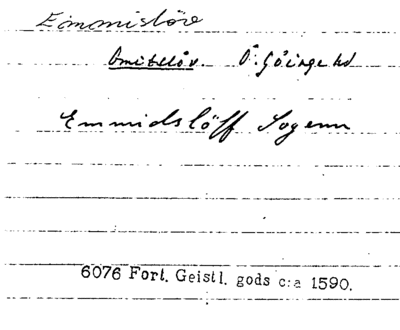 Emmislöv
Omitslöv. Ö. Göinge hd
Emmidslöff Sogenn
6076 Fort. Geistl. gods c:a 1590.